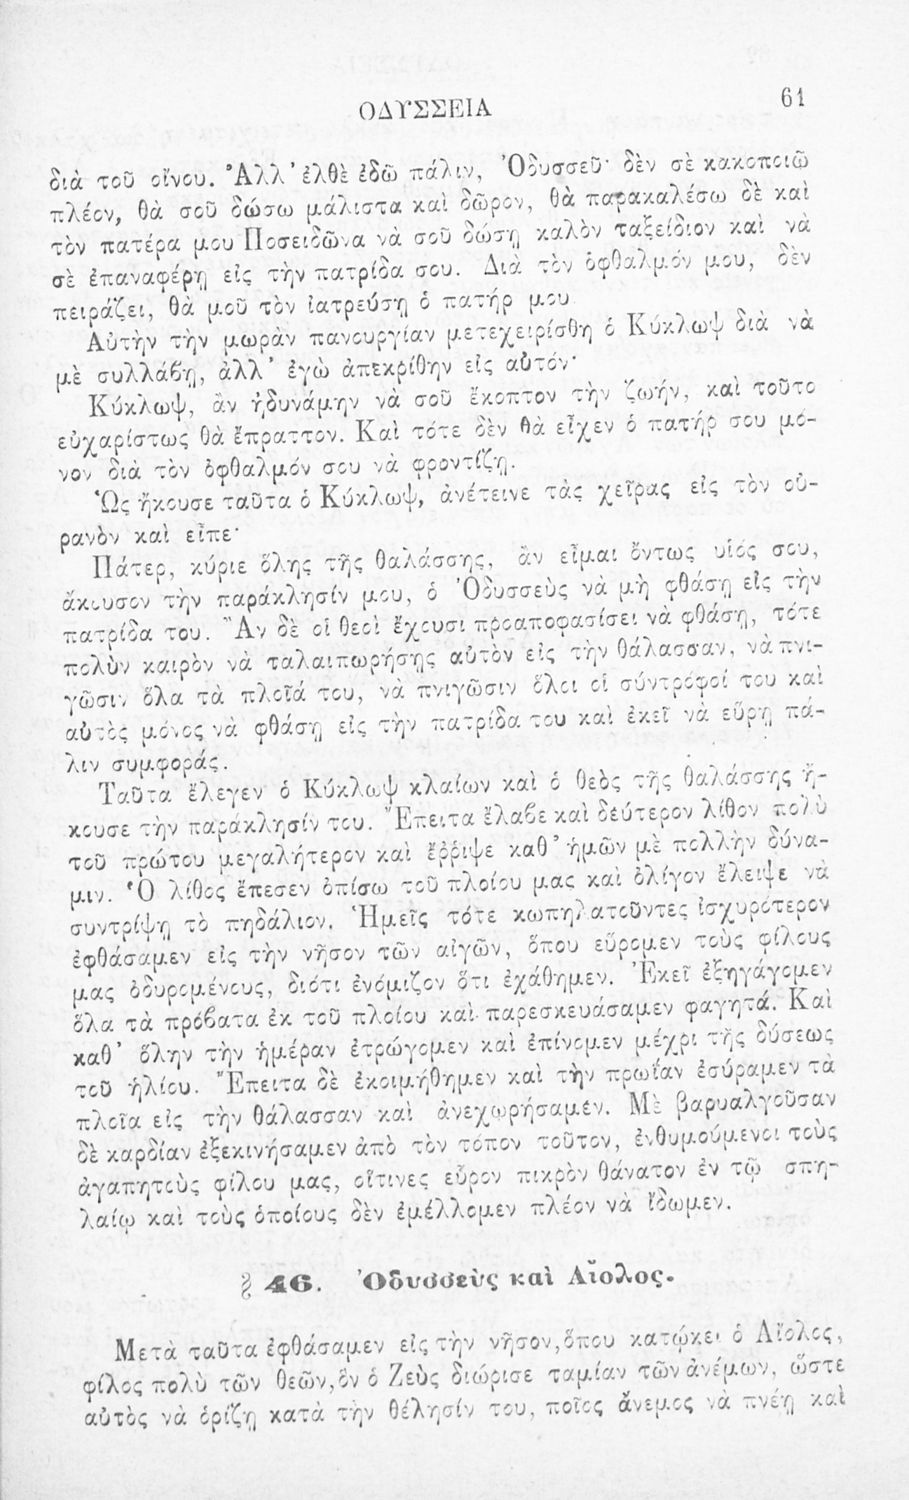 ΟΔΥΣΣΕΙΑ 61
διὰ τοῦ οἴνου. Ἀλλ' ἐλθὲ ἐδῶ πάλιν, Ὀδυσσεῦ· δὲν σὲ κακοποιῶ
πλέον, θὰ σοῦ δώσω μάλιστα καὶ δῶρον, θὰ παρακαλέσω δὲ καὶ
τὸν πατέρα μου Ποσειδῶνα νὰ σοῦ δώσῃ καλὸν ταξείδιον καὶ νὰ
σὲ ἐπαναφέρῃ εἰς τὴν πατρίδα σου. Διὰ τὸν ὀφθαλμόν μου, δὲν
πειράζει, θὰ μοῦ τὸν ἰατρεύσῃ ὁ πατήρ μου
Αὐτὴν τὴν μωρὰν πανουργίαν μετεχειρίσθη ὁ Κύκλωψ διὰ νὰ
μὲ συλλάβῃ, ἀλλ' ἐγὼ ἀπεκρίθην εἰς αὐτόν·
Κύκλωψ, ἂν ἠδυνάμην νὰ σοῦ ἔκοπτον τὴν ζωήν, καὶ τοῦτο
εὐχαρίστως θὰ ἔπραττον. Καὶ τότε δὲν θὰ εἶχεν ὁ πατήρ σου μό-
νον διὰ τὸν ὀφθαλμόν σου νὰ φροντίζῃ.
Ὡς ἤκουσε ταῦτα ὁ Κύκλωψ, ἀνέτεινε τὰς χεῖρας εἰς τὸν οὐ-
ρανὸν καὶ εἶπε·
Πάτερ, κύριε ὅλης τῆς θαλάσσης, ἂν εἶμαι ὄντως υἱός σου,
ἄκουσον τὴν παράκλησίν μου, ὁ Ὀδυσσεὺς νὰ μὴ φθάσῃ εἰς τὴν
πατρίδα του. Ἂν δὲ οἱ θεοὶ ἔχουσι προαποφασίσει νὰ φθάσῃ, τότε
πολὺν καιρὸν νὰ ταλαιπωρήσῃς αὐτὸν εἰς τὴν θάλασσαν, νὰ πνι-
γῶσιν ὅλα τὰ πλοῖά του, νὰ πνιγῶσιν ὅλοι οἱ σύντροφοί του καὶ
αὐτὸς μόνος νὰ φθάσῃ εἰς τὴν πατρίδα του καὶ ἐκεῖ νὰ εὕρῃ πά-
λιν συμφοράς.
Ταῦτα ἔλεγεν ὁ Κύκλωψ κλαίων καὶ ὁ θεὸς τῆς θαλάσσης ἤ-
κουσε τὴν παράκλησίν του. Ἔπειτα ἔλαβε καὶ δεύτερον λίθον πολὺ
τοῦ πρώτου μεγαλήτερον καὶ ἔρριψε καθ' ἡμῶν μὲ πολλὴν δύνα-
μιν. Ὁ λίθος ἔπεσεν ὀπίσω τοῦ πλοίου μας καὶ ὀλίγον ἔλειψε νὰ
συντρίψῃ τὸ πηδάλιον. Ἡμεῖς τότε κωπηλατοῦντες ἰσχυρότερον
ἐφθάσαμεν εἰς τὴν νῆσον τῶν αἰγῶν, ὅπου εὕρομεν τοὺς φίλους
μας ὀδυρομένους, διότι ἐνόμιζον ὅτι ἐχάθημεν. Ἐκεῖ ἐξηγάγομεν
ὅλα τὰ πρόβατα ἐκ τοῦ πλοίου καὶ παρεσκευάσαμεν φαγητά. Καὶ
καθ' ὅλην τὴν ἡμέραν ἐτρώγομεν καὶ ἐπίνομεν μέχρι τῆς δύσεως
τοῦ ἡλίου. Ἔπειτα δὲ ἐκοιμήθημεν καὶ τὴν πρωΐαν ἐσύραμεν τὰ
πλοῖα εἰς τὴν θάλασσαν καὶ ἀνεχωρήσαμεν. Μὲ βαρυαλγοῦσαν
δὲ καρδίαν ἐξεκινήσαμεν ἀπὸ τὸν τόπον τοῦτον, ἐνθυμούμενοι τοὺς
ἀγαπητοὺς φίλου μας, οἵτινες εὗρον πικρὸν θάνατον ἐν τῷ σπη-
λαίῳ καὶ τοὺς ὁποίους δὲν ἐμέλλομεν πλέον νὰ ἴδωμεν.
§ 46. Ὀδυσσεὺς καὶ Αἴολος.
Μετὰ ταῦτα ἐφθάσαμεν εἰς τὴν νῆσον, ὅπου κατῴκει ὁ Αἴολος,
φίλος πολὺ τῶν θεῶν, ὃν ὁ Ζεὺς διώρισε ταμίαν τῶν ἀνέμων, ὥστε
αὐτὸς νὰ ὁρίζῃ κατὰ τὴν θέλησίν του, ποῖος ἄνεμος νὰ πνέῃ καὶ